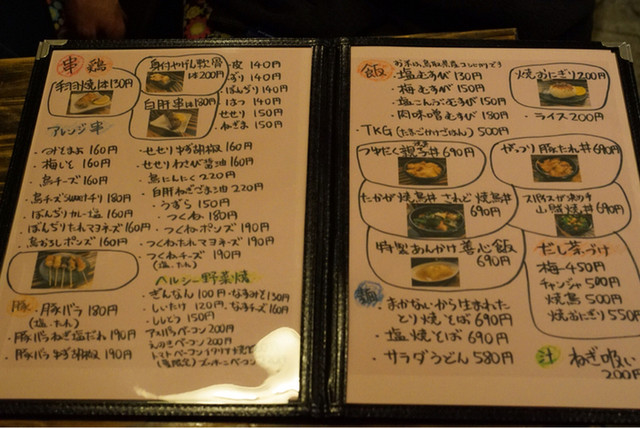 串 鶏
手羽焼 1本130円
身付やげん軟骨
1本200円
白肝串 1本180円
皮 140円
ずり 140円
ぼんぢり 140円
はつ 140円
せせり 150円
ねぎま 150円
アレンジ串
・つくねまよ 160円
・梅しそ 160円
・鳥チーズ 160円
・鳥チーズsweetチリ 180円
・ぼんぢりカレー塩 160円
・ぼんぢりたれマヨネーズ 160円
・鳥おろしポンズ 160円
・せせりゆず胡椒 160円
・せせりわさび醤油 160円
・鳥にんにく 220円
・白肝ねぎごま油 220円
・うずら 150円
・つくね 180円
・つくねポンズ 190円
・つくねたれマヨネーズ 190円
・つくねチーズ 190円
(塩.たれ)
豚
・豚バラ 180円
(塩.たれ)
・豚バラねぎ塩だれ 190円
・豚バラゆず胡椒 190円
ヘルシー野菜焼
・ぎんなん 100円
・なすみそ 130円
・しいたけ 120円
・なすチーズ 160円
・ししとう 150円
・アスパラベーコン 200円
・えのきベーコン 200円
飯
・塩むすび 130円
・梅むすび 150円
・塩こんぶむすび 150円
・肉味噌むすび 180円
・TKG (たまごかけごはん) 500円
焼おにぎり 200円
・ライス 200円
つやたく親子丼 690円
がっつり豚たれ丼 690円
たかが焼鳥丼 されど焼鳥丼
690円
山賊焼丼 690円
特製あんかけ善心飯
690円
だし茶づけ
梅 450円
チャンジャ 500円
焼鳥 500円
焼おにぎり 550円
麺
・まかないから生まれた
とり焼そば 690円
・塩焼そば 690円
・サラダうどん 580円
汁
ねぎ吸い
200円